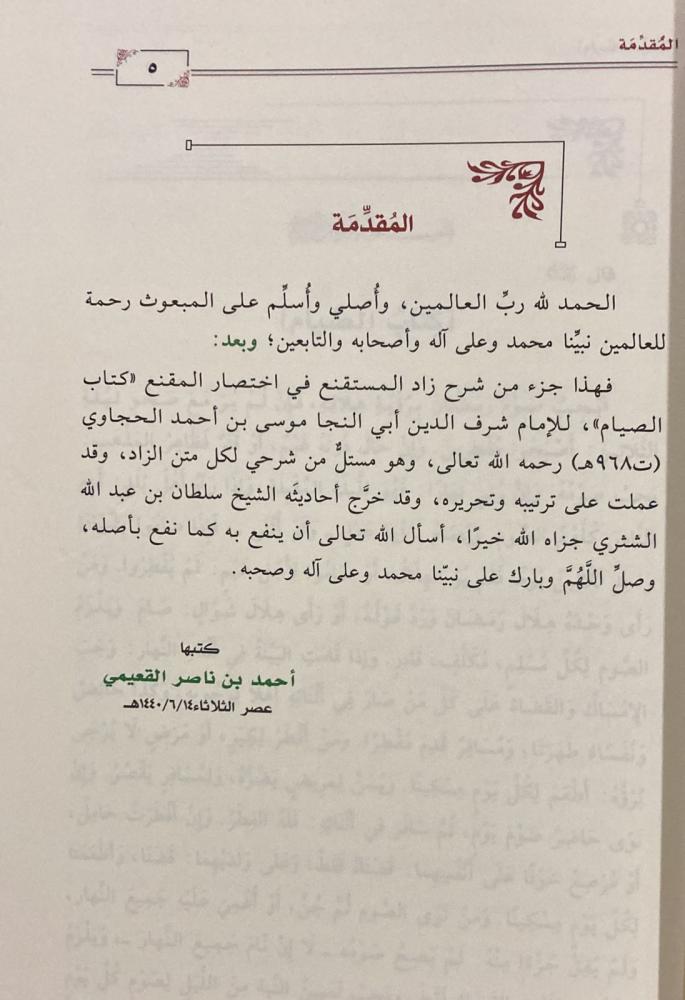 المُقدِّمَة
٥
المُقدِّمَة
الحمد لله ربِّ العالمين، وأُصلي وأُسلِّم على المبعوث رحمة
للعالمين نبيِّنا محمد وعلى آله وأصحابه والتابعين؛ وبعد:
فهذا جزء من شرح زاد المستقنع في اختصار المقنع «كتاب
الصيام»، للإمام شرف الدين أبي النجا موسى بن أحمد الحجاوي
(ت٩٦٨هـ) رحمه الله تعالى، وهو مستلٌّ من شرحي لكل متن الزاد، وقد
عملت على ترتيبه وتحريره، وقد خرَّج أحاديثَه الشيخ سلطان بن عبد الله
الشثري جزاه الله خيرًا، أسأل الله تعالى أن ينفع به كما نفع بأصله،
وصلِّ اللَّهُمَّ وبارك على نبيّنا محمد وعلى آله وصحبه.
كتبها
أحمد بن ناصر القعيمي
عصر الثلاثاء١٤٤٠/٦/١٤هـ